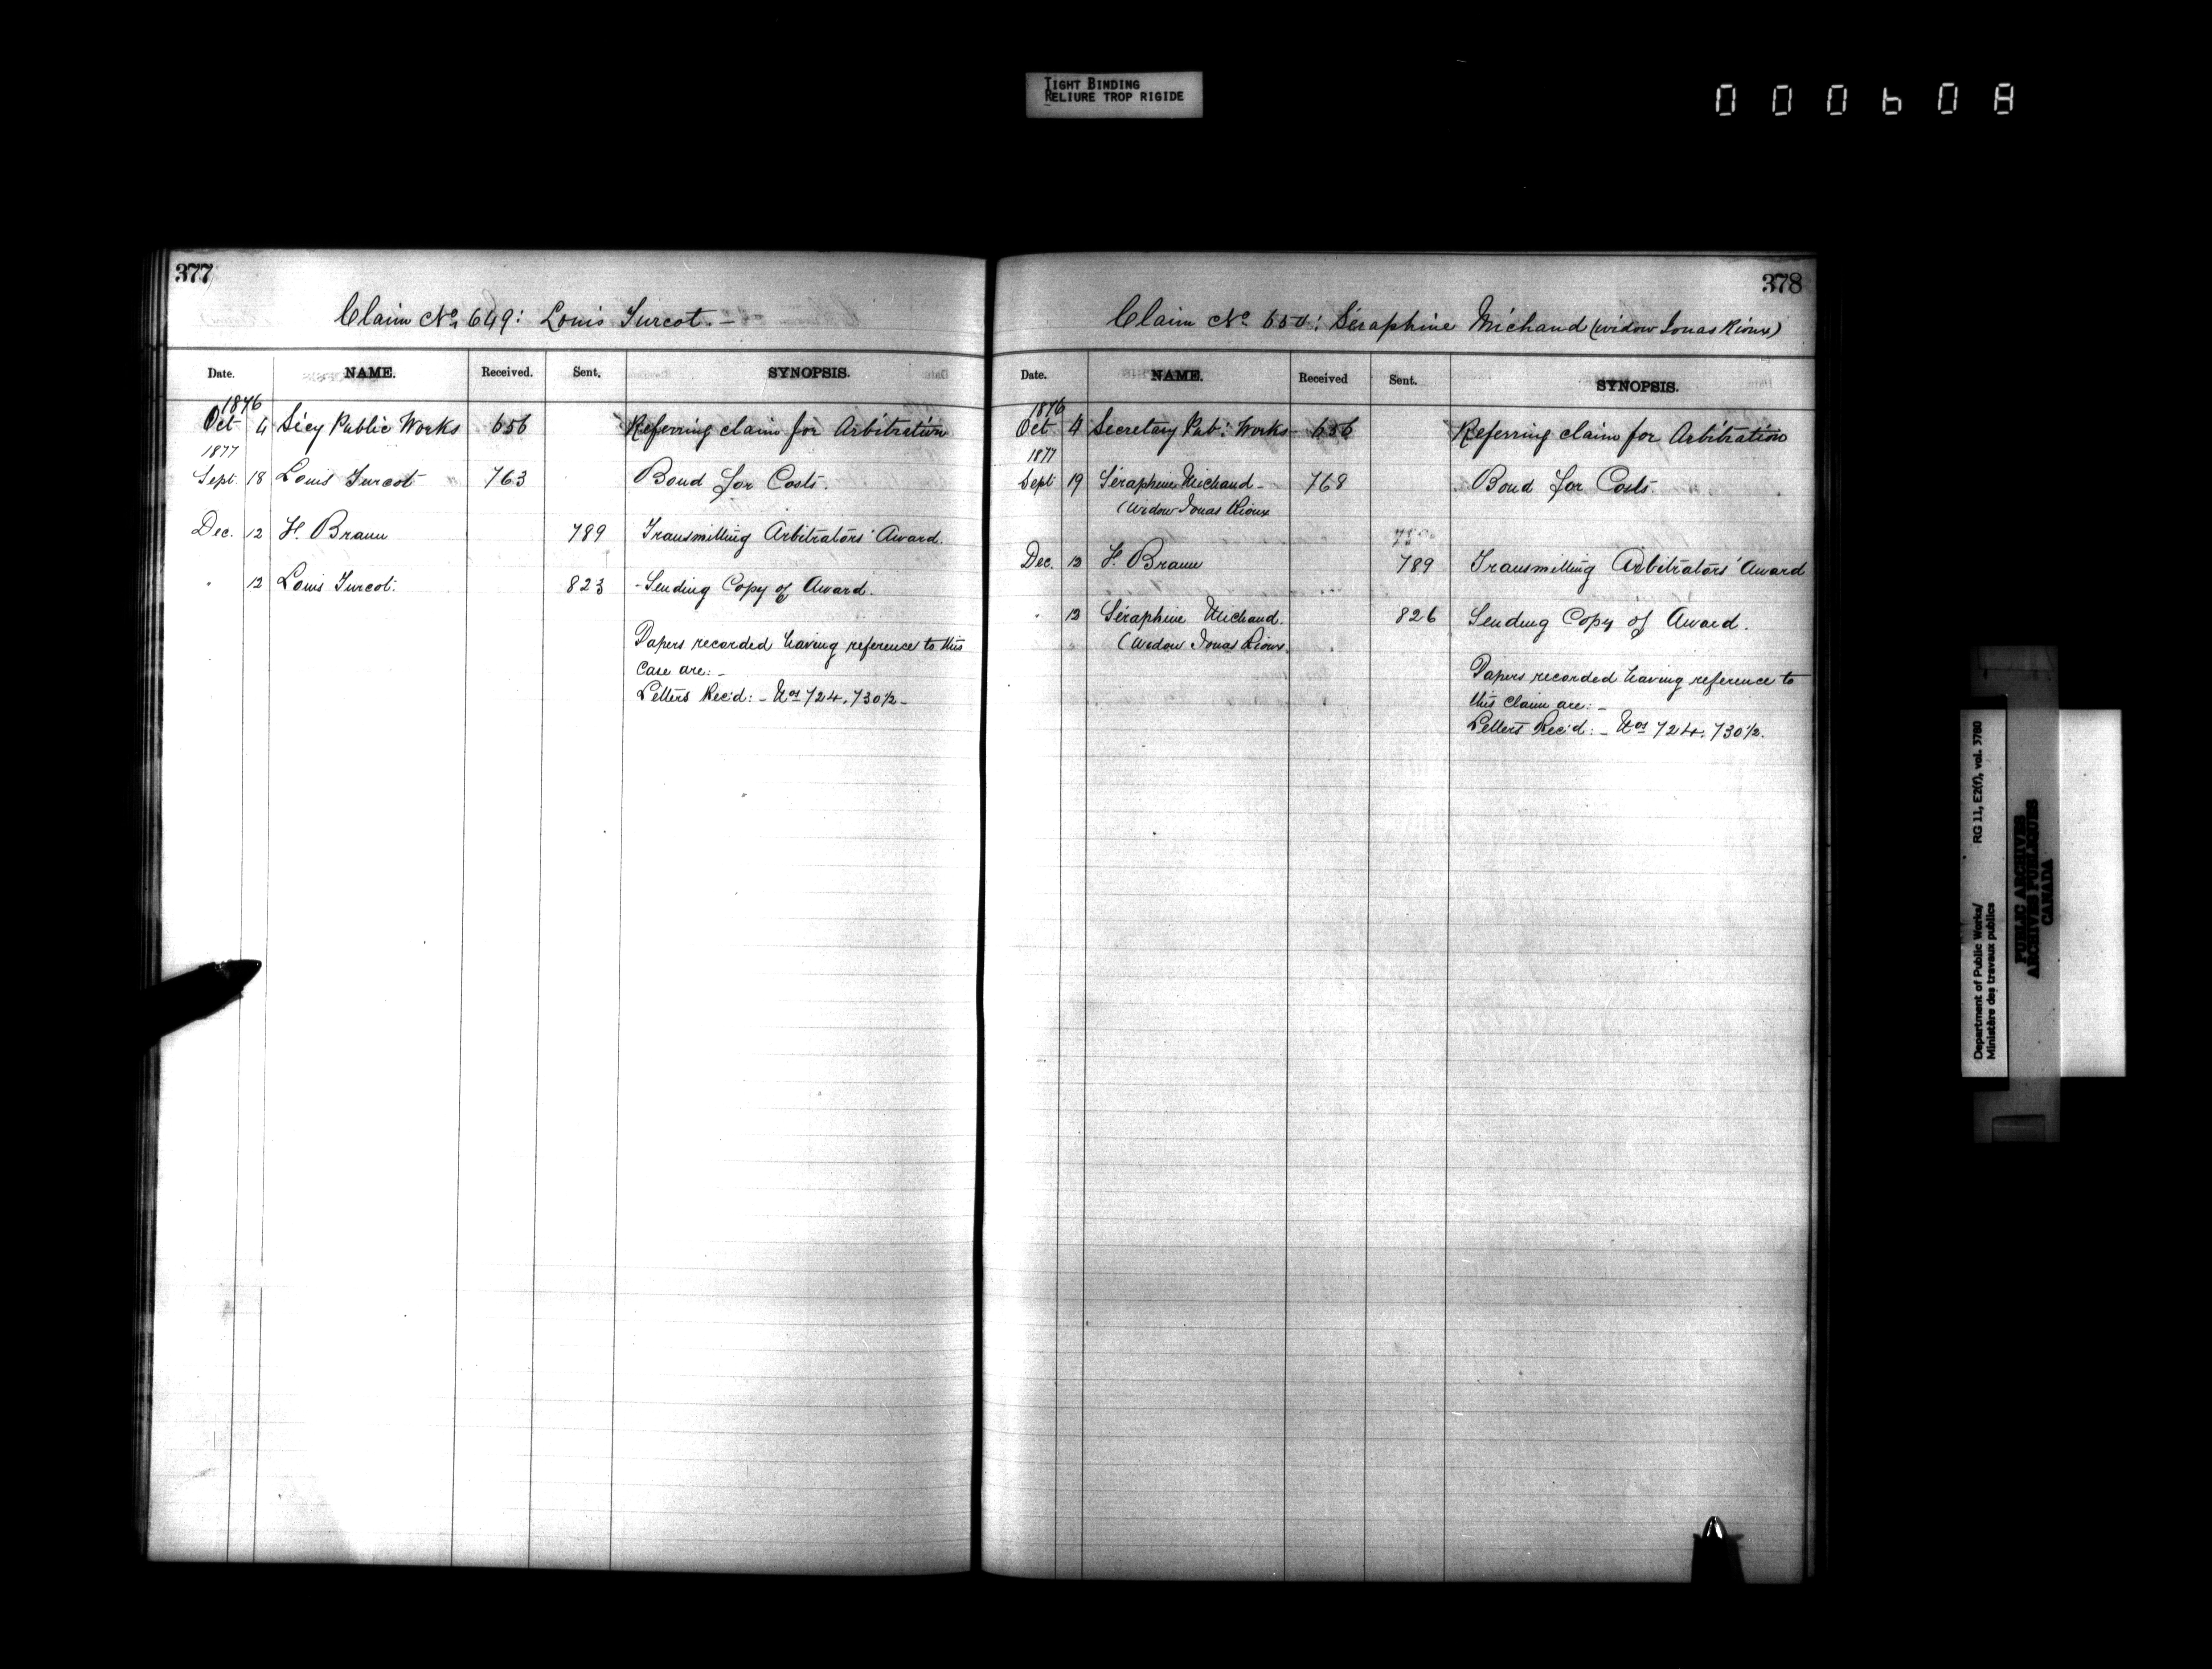 TIGHT BINDING
RELIURE TROP RIGIDE
000608
377
Claim No. 649: Louis Turcot. –
Date. NAME. Received. Sent. SYNOPSIS.
1876
Oct 4 Secy Public Works 656 Referring claim for Arbitration
1877
Sept. 18 Louis Turcot 763 Bond for Costs.
Dec. 12 F. Braun 789 Transmitting Arbitrators' Award.
" 12 Louis Turcot. 823 - Sending Copy of Award.
Papers recorded having reference to this
case are: –
Letters Rec'd: – Nos 724. 730½ –
378
Claim No. 650: Séraphine Michaud (widow Jonas Rioux)
Date. NAME. Received Sent. SYNOPSIS.
1876
Oct 4 Secretary Pub: Works 656 Referring claim for Arbitration
1877
Sept 19 Séraphine Michaud – 768 Bond for Costs.
(Widow Jonas Rioux
Dec. 12 F. Braun 789 Transmitting Arbitrators' Award
" 12 Séraphine Michaud. 826 Sending Copy of Award.
(Widow Jonas Rioux.
Papers recorded having reference to
this claim are: –
Letters Rec'd: – Nos 724. 730½.
Department of Public Works/ RG 11, E2(f), vol. 3780
Ministère des travaux publics
PUBLIC ARCHIVES
ARCHIVES PUBLIQUES
CANADA